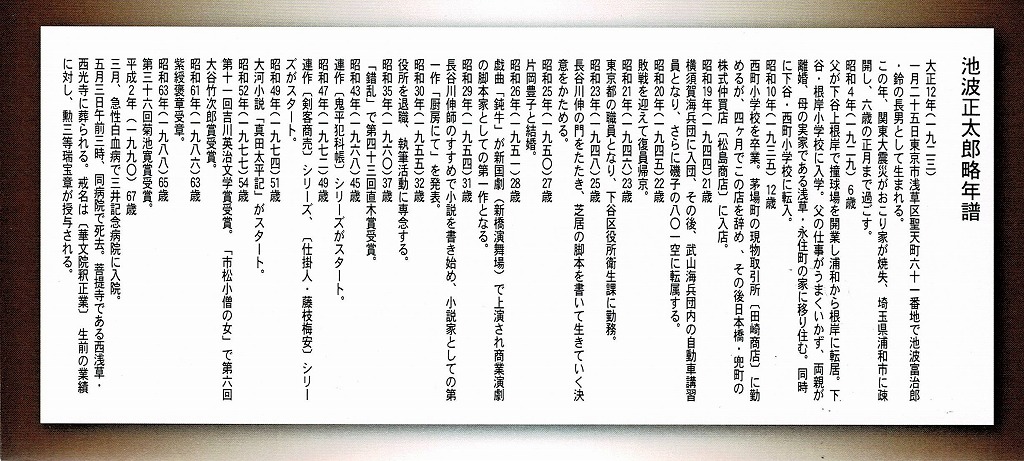 池波正太郎略年譜
大正12年(一九二三)
一月二十五日東京市浅草区聖天町六十一番地で池波富治郎
・鈴の長男として生まれる。
この年、関東大震災がおこり家が焼失、埼玉県浦和市に疎
開し、六歳の正月まで過ごす。
昭和4年(一九二九)6歳
父が下谷上根岸で撞球場を開業し浦和から根岸に転居。下
谷・根岸小学校に入学。父の仕事がうまくいかず、両親が
離婚、母の実家である浅草・永住町の家に移り住む。同時
に下谷・西町小学校に転入。
昭和10年(一九三五)12歳
西町小学校を卒業。茅場町の現物取引所〔田崎商店〕に勤
めるが、四ヶ月でこの店を辞め、その後日本橋・兜町の
株式仲買店〔松島商店〕に入店。
昭和19年(一九四四)21歳
横須賀海兵団に入団、その後、武山海兵団内の自動車講習
員となり、さらに磯子の八〇一空に転属する。
昭和20年(一九四五)22歳
敗戦を迎えて復員帰京。
昭和21年(一九四六)23歳
東京都の職員となり、下谷区役所衛生課に勤務。
昭和23年(一九四八)25歳
長谷川伸の門をたたき、芝居の脚本を書いて生きていく決
意をかためる。
昭和25年(一九五〇)27歳
片岡豊子と結婚。
昭和26年(一九五一)28歳
戯曲「鈍牛」が新国劇(新橋演舞場)で上演され商業演劇
の脚本家としての第一作となる。
昭和29年(一九五四)31歳
長谷川伸師のすすめで小説を書き始め、小説家としての第
一作「厨房にて」を発表。
昭和30年(一九五五)32歳
役所を退職、執筆活動に専念する。
昭和35年(一九六〇)37歳
「錯乱」で第四十三回直木賞受賞。
昭和43年(一九六八)45歳
連作〔鬼平犯科帳〕シリーズがスタート。
昭和47年(一九七二)49歳
連作〔剣客商売〕シリーズ、〔仕掛人・藤枝梅安〕シリー
ズがスタート。
昭和49年(一九七四)51歳
大河小説「真田太平記」がスタート。
昭和52年(一九七七)54歳
第十一回吉川英治文学賞受賞。「市松小僧の女」で第六回
大谷竹次郎賞受賞。
昭和61年(一九八六)63歳
紫綬褒章受章。
昭和63年(一九八八)65歳
第三十六回菊池寛賞受賞。
平成2年(一九九〇)67歳
三月、急性白血病で三井記念病院に入院。
五月三日午前三時、同病院で死去。菩提寺である西浅草・
西光寺に葬られる。戒名は〔華文院釈正業〕生前の業績
に対し、勲三等瑞宝章が授与される。